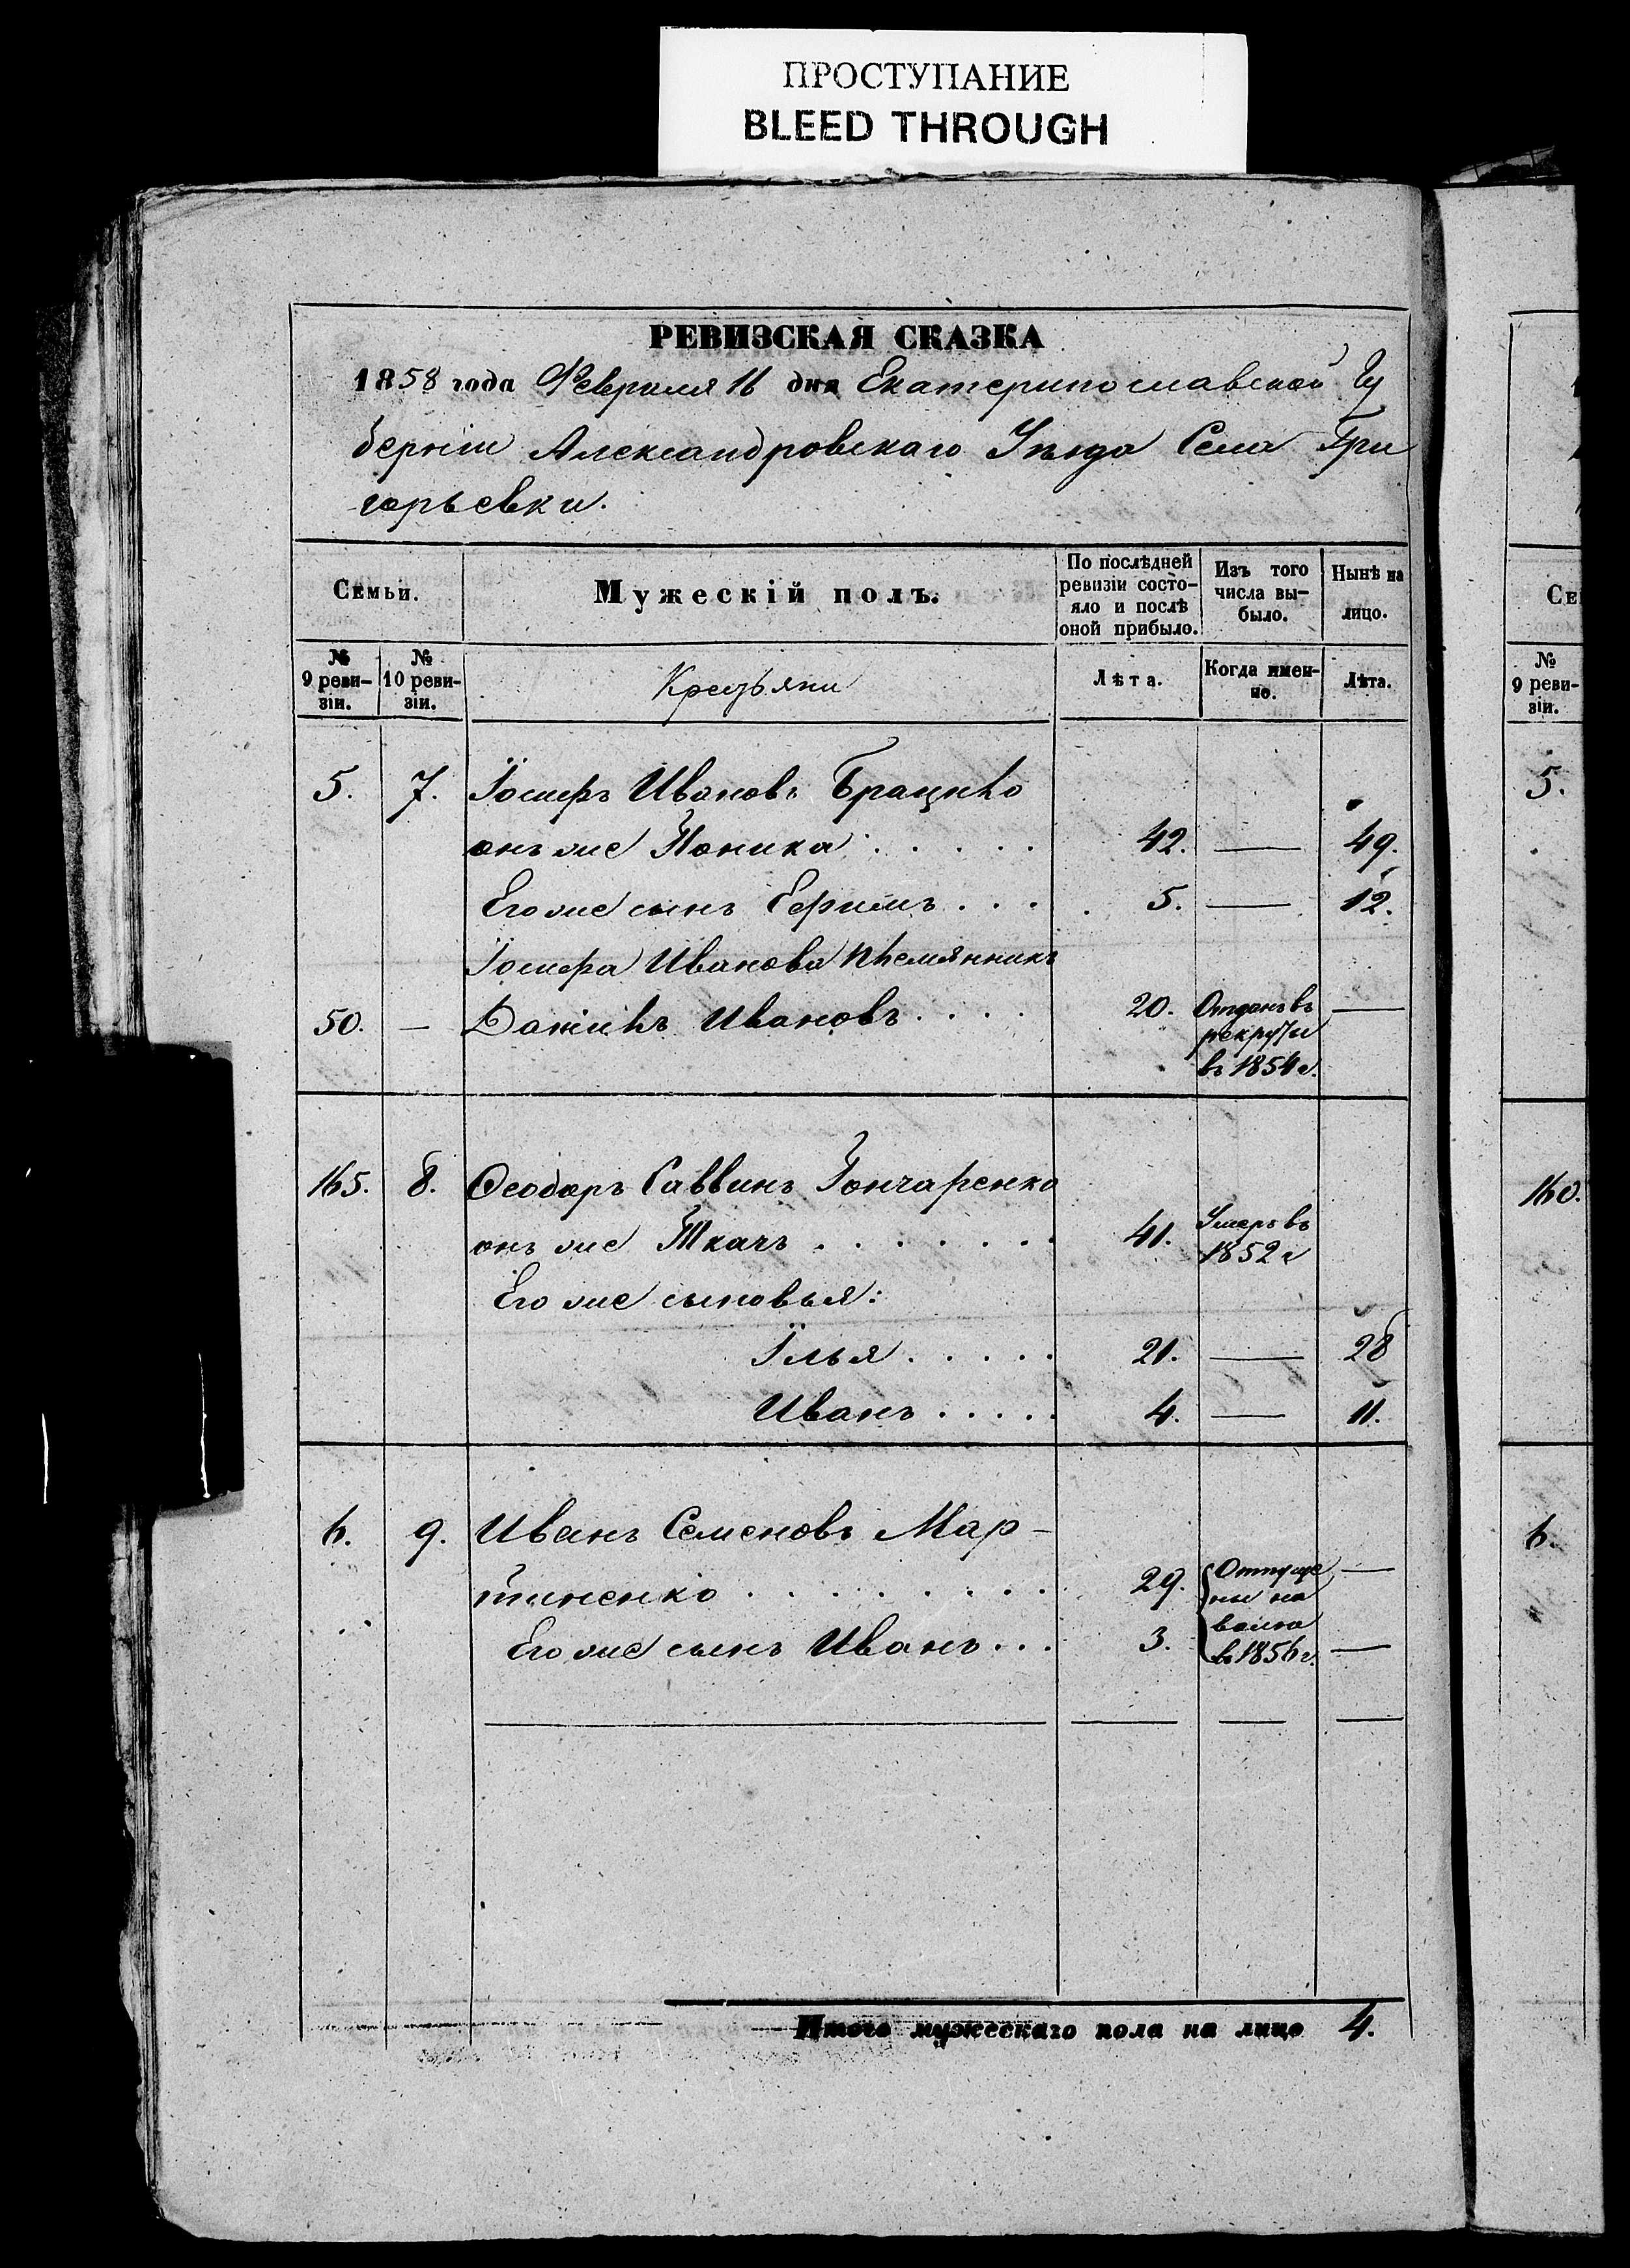 ПРОСТУПАНИЕ
BLEED THROUGH
РЕВИЗСКАЯ СКАЗКА
1858 года Февраля 16 дня Екатеринославской Гу
берніи Александровскаго Уѣзда Села Гри
горьевки.
Семьи.
Мужескій полъ.
По послѣдней ревизіи состо-яло и послѣ оной прибыло.
Изъ того числа вы-было.
Нынѣ на лицо.
№ 9 реви-зіи.
№ 10 реви-зіи.
Крестьяни
Лѣта.
Когда имен-но.
Лѣта.
5. 7. Іосифъ Ивановъ
онъ же 42. — 49.
Его же сынъ Ефимъ . . . . 5. — 12.
Іосифа Иванова племянникъ
50. — Даніилъ Ивановъ . . . . 20. Отданъ въ —
рекруты
въ 1854 г.
165. 8. Ѳеодоръ Саввинъ Гончаренко
онъ же Ткачъ . . . . . . . 41. Умеръ въ
1852 г
Его же сыновья:
Илья . . . . . 21. — 28
Иванъ . . . . . 4. — 11.
6. 9. Иванъ Семеновъ Мар-
тиненко . . . . . . . . . 29. Отпуще —
ны на
волю
Его же сынъ Иванъ . . . 3. в 1856 г. —
Итого мужескаго пола на лицо 4.
Се
№
9 реви-
зіи.
5.
160.
6.